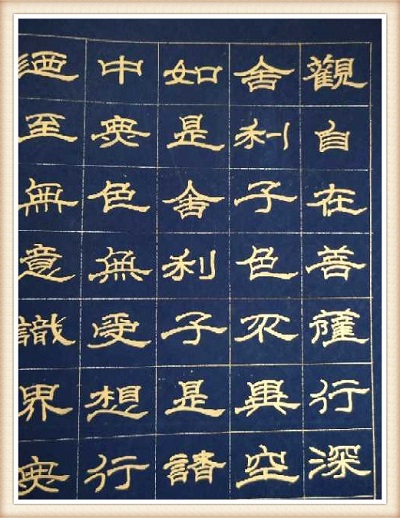 觀自在菩薩行深
舍利子色不異空
如是舍利子是諸
中無色無受想行
迺至無意識界無